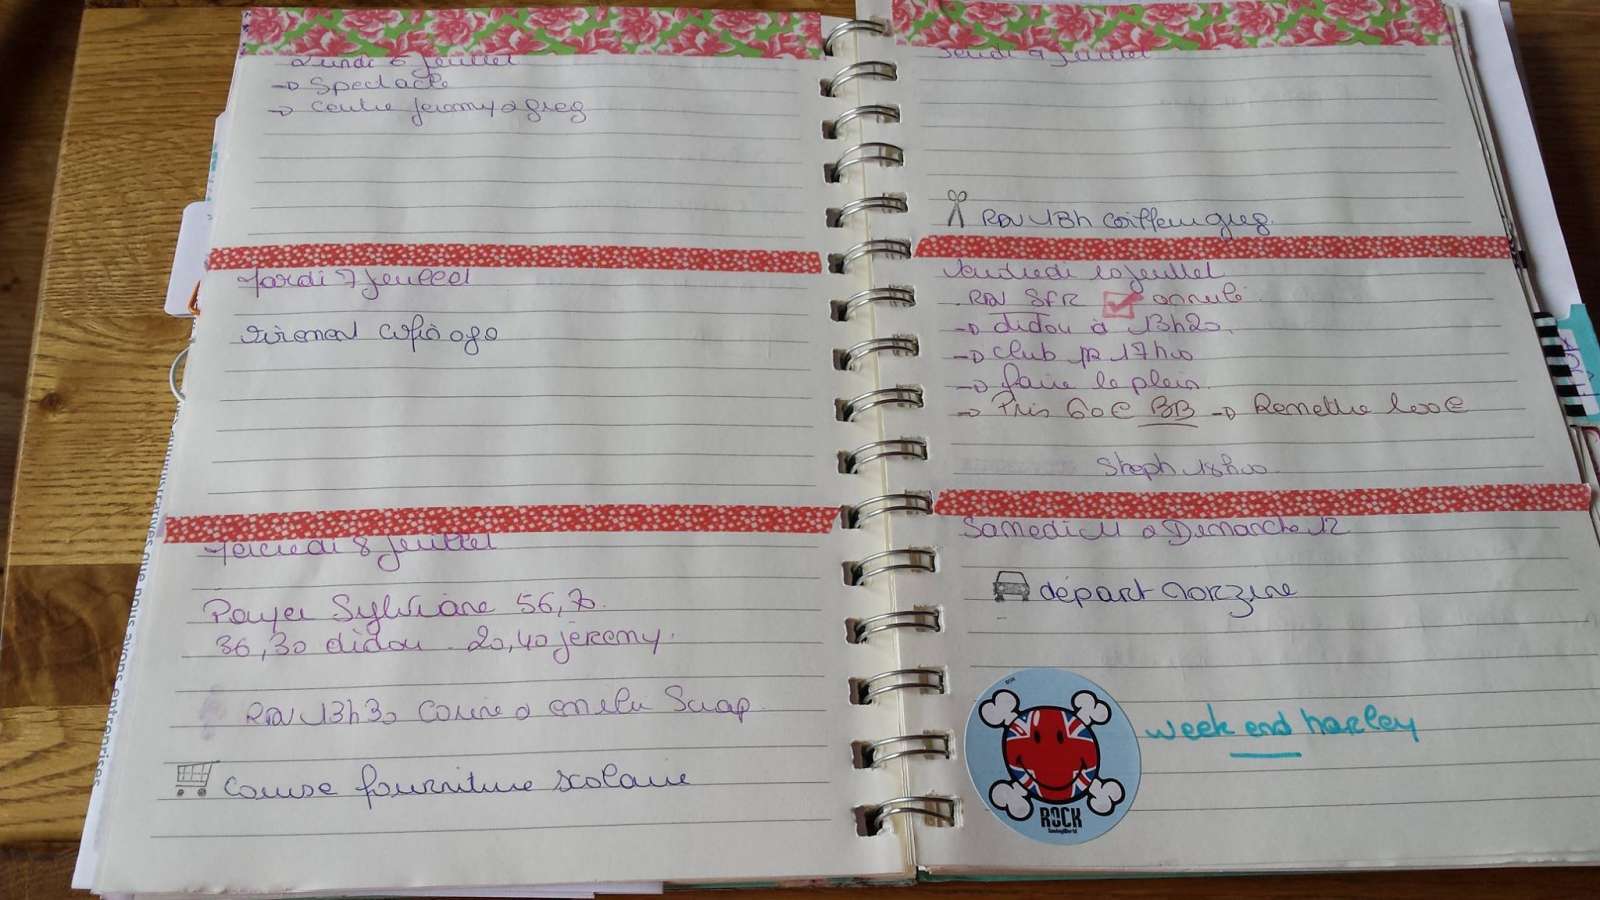 Lundi 6 Juillet
→ Spectacle
→ Centre jeremy & greg
Mardi 7 Juillet
Virement
Mercredi 8 Juillet
Payer Sylviane 56,70.
36,30 didou . 20,40 jeremy.
RDV 13h30 Corine & emelu Scrap
Course fourniture scolaire
Jeudi 9 Juillet
RDV 13h coiffeur greg.
Vendredi 10 Juillet
RDV SFR annulé
→ didou à 13h20.
→ club 17h00
→ faire le plein.
→ Pris 60€ BB → Remettre 100€
Steph 18h00
Samedi 11 & Dimanche 12
départ morzine
week end harley
ROCK
SmileyWorld
que nous avons entreprises